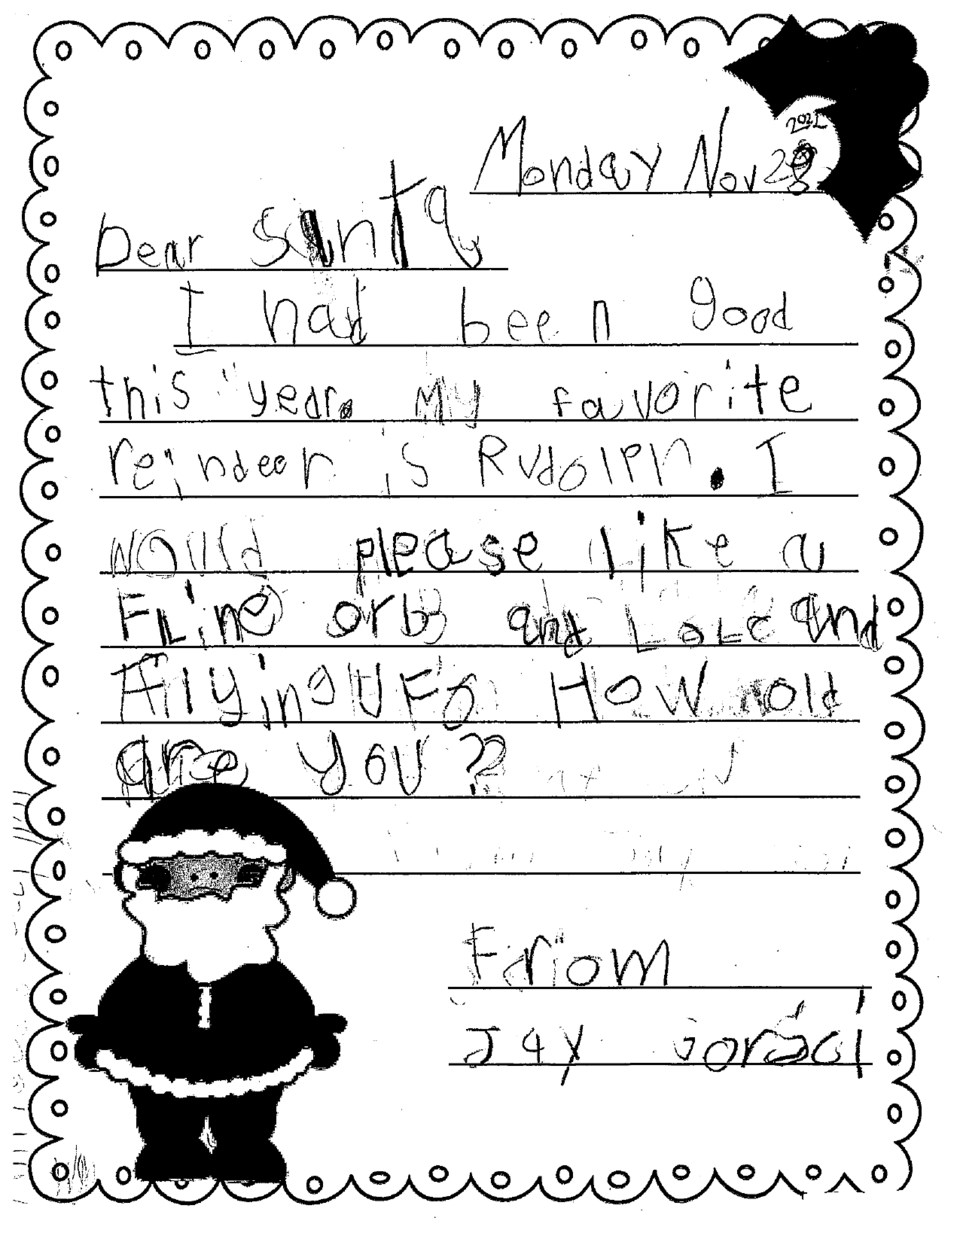 2022
Monday Nov 28
Dear Santa
I had been good
this year. My favorite
reindeer is Rudolph. I
would please like a
FLine orb and and
Flying UFO How old
are you?
From
Jay